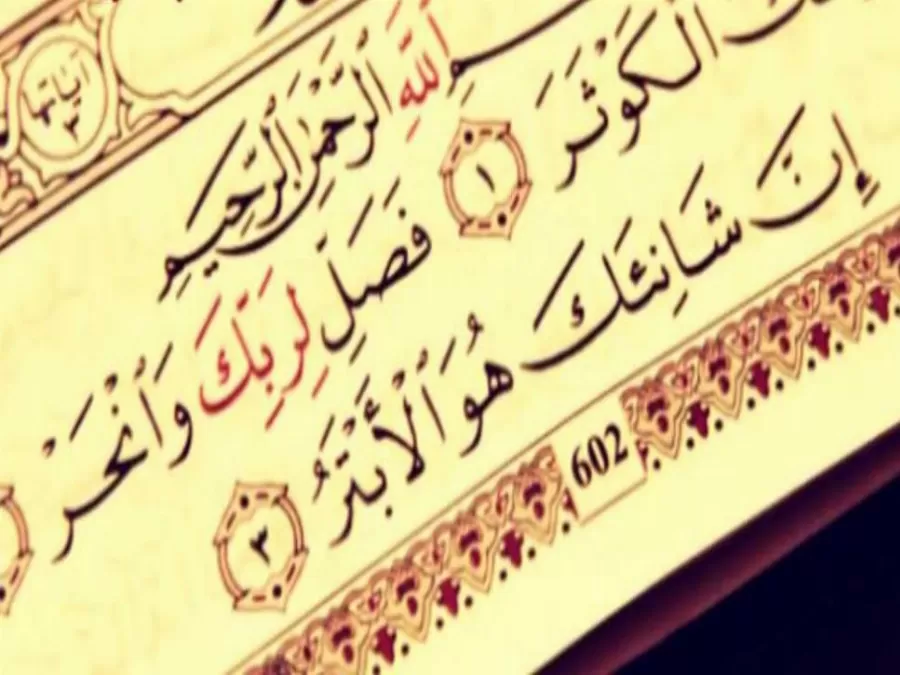 آياتها
٣
سْمِ ٱللَّهِ ٱلرَّحْمَٰنِ ٱلرَّحِيمِ
ٱلْكَوْثَرَ ١ فَصَلِّ لِرَبِّكَ وَٱنْحَرْ
إِنَّ شَانِئَكَ هُوَ ٱلْأَبْتَرُ ٣
602